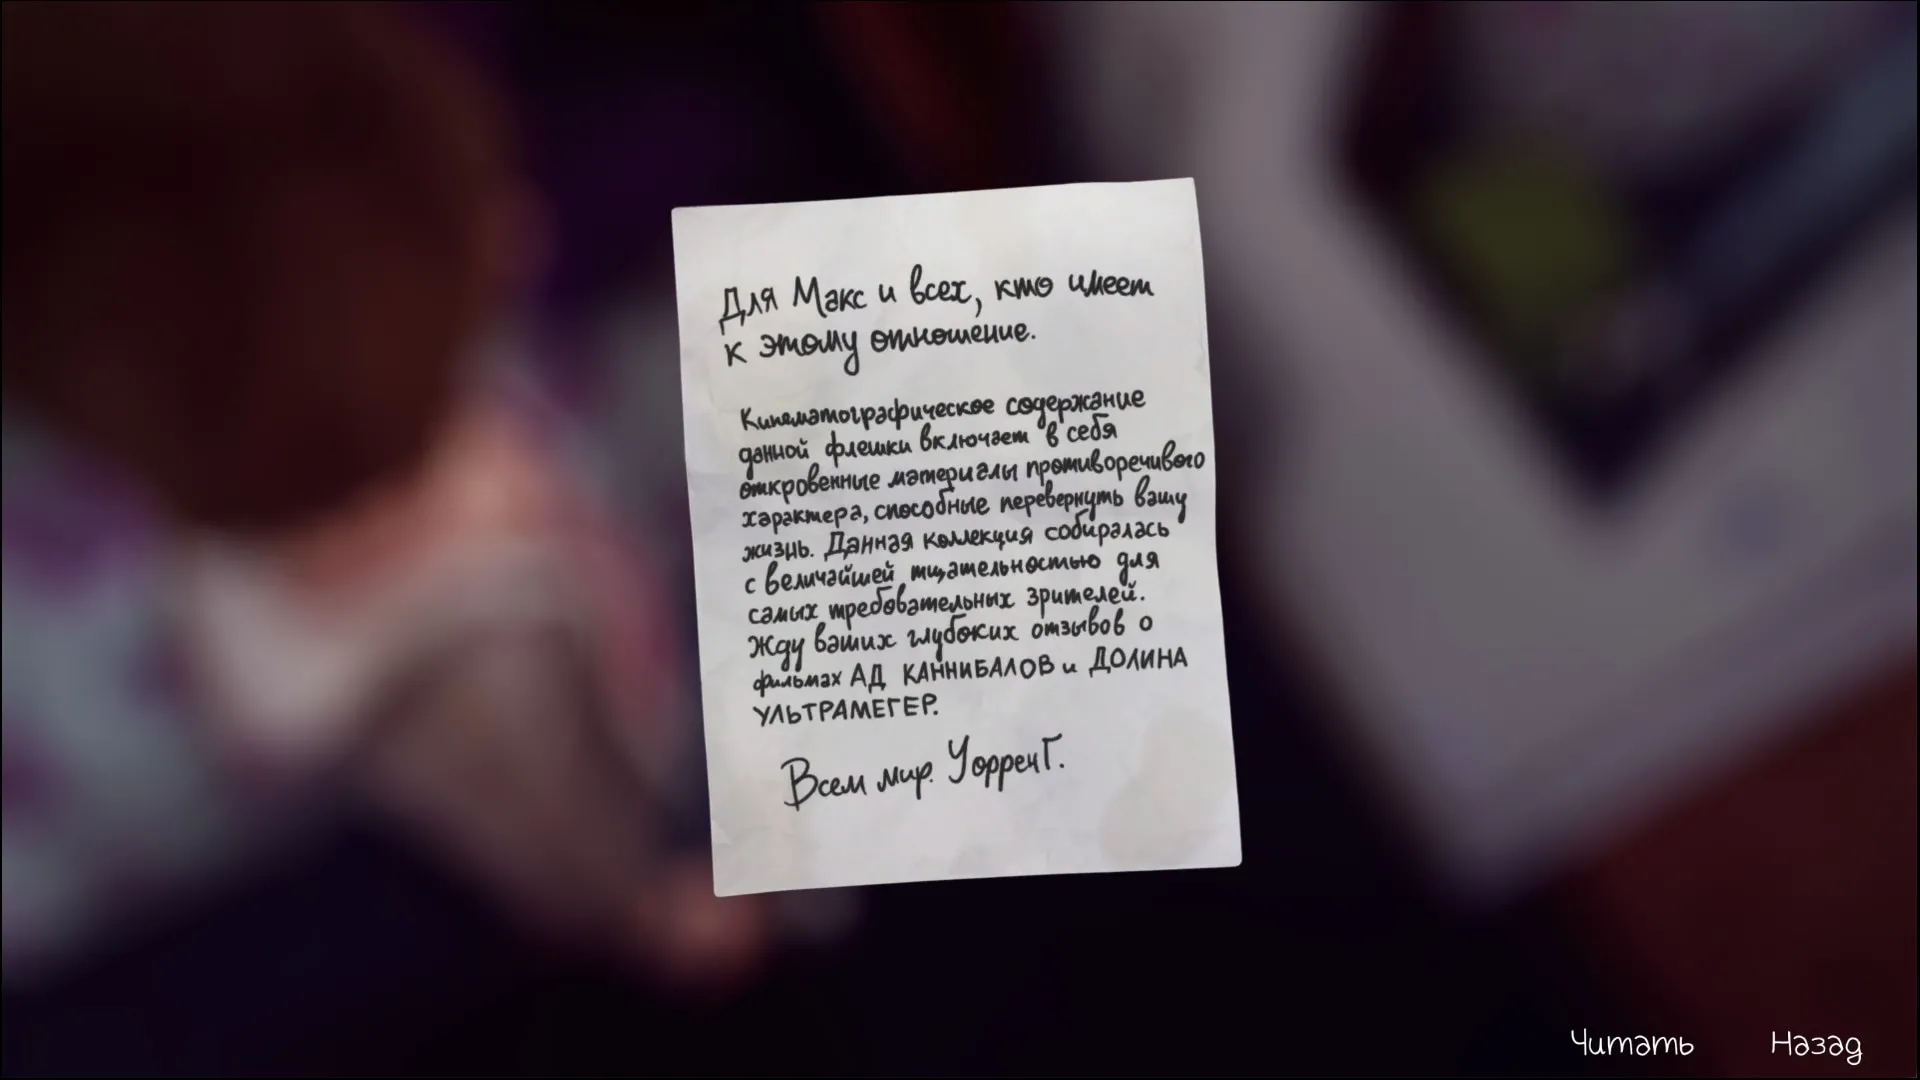 Для Макс и всех, кто имеет
к этому отношение.
Кинематографическое содержание
данной флешки включает в себя
откровенные материалы противоречивого
характера, способные перевернуть вашу
жизнь. Данная коллекция собиралась
с величайшей тщательностью для
самых требовательных зрителей.
Жду ваших глубоких отзывов о
фильмах АД КАННИБАЛОВ и ДОЛИНА
УЛЬТРАМЕГЕР.
Всем мир. Уоррен Г.
Читать Назад